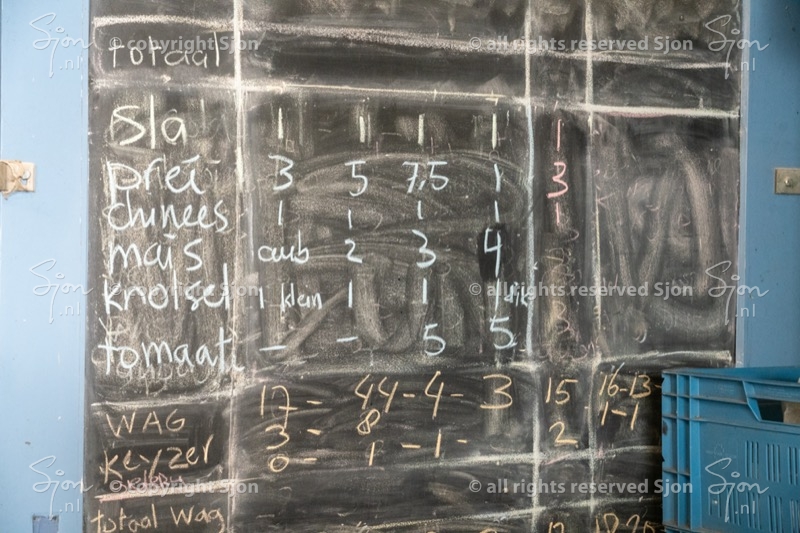 totaal
Sjon .nl © copyright Sjon © all rights reserved Sjon Sjon .nl
sla 1 1 1 1 1
prei 3 5 7,5 1 3
chinees 1 1 1 1 1
mais 2 3 4
knolsel 1 klein 1 1 1
Sjon .nl © copyright Sjon © all rights reserved Sjon Sjon .nl
tomaat - - 5 5
WAG 17 = 44 - 4 - 3 15 16-13-
8 1-1
KEYZER 3 = 1 - 1 - 2
0
Sjon .nl © copyright Sjon © all rights reserved Sjon Sjon .nl
totaal Wag